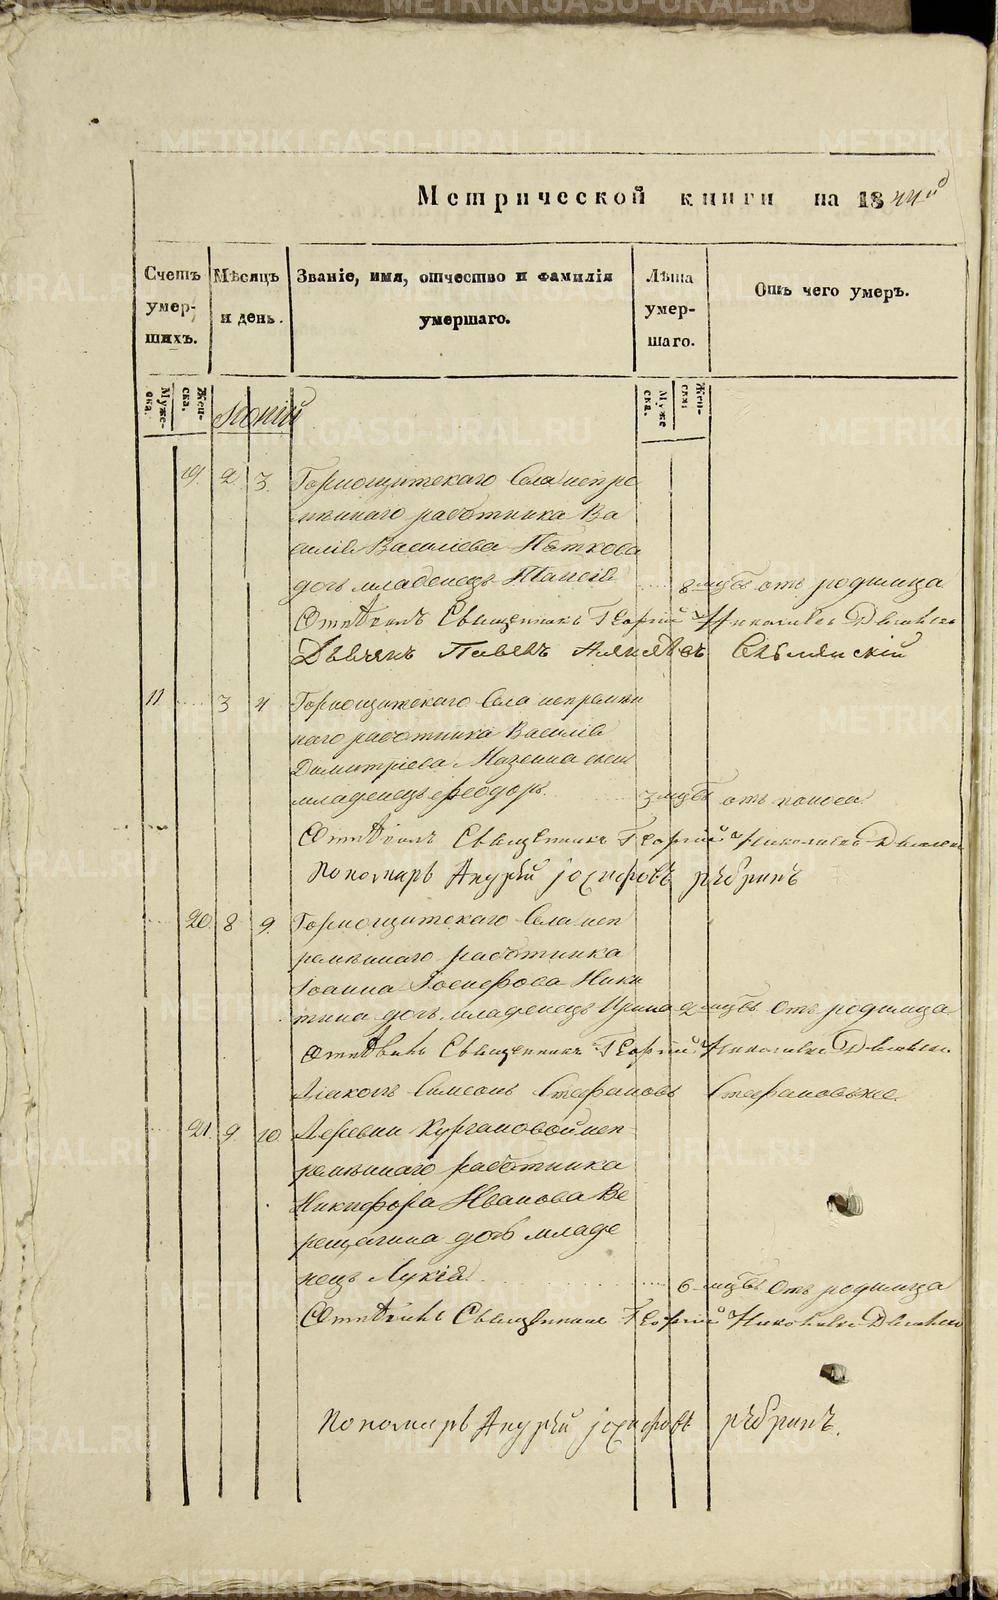 METRIKI.GASO-URAL.RU
Метрической книги на 1844й
Счетъ умер-шихъ.
Мѣсяцъ и день.
Званіе, имя, отчество и фамилія умершаго.
Лѣта умер-шаго.
Отъ чего умеръ.
Муже-ска. Жен-ска. Іюній Муже ска. Жен-ска:
19. 2. 3. Горнощитскаго Села непре
мѣннаго работника Ва
силія Васильева Пѣткова
дочь младенецъ 8 мцъ отъ родимца
Отпѣвалъ Священникъ Георгій Николаевъ
Дьячекъ Павелъ
11 3 4 Горнощитскаго Села непремѣн
наго работника Василія
Димитріева сынъ
младенецъ Феодоръ 3 мцъ отъ поноса
Отпѣвалъ Священникъ Георгій Николаевъ
Пономарь Андрей Іосифовъ Рѣбринъ
20. 8 9. Горнощитскаго Села неп
ремѣннаго работника
Іоанна Іосифова Ники
тина дочь младенецъ Ирина 2 мцъ отъ родимца
Отпѣвалъ Священникъ Георгій Николаевъ
Діаконъ Симеонъ Стефановъ Стефановъже
21. 9 10. Деревни Кургановой неп
ремѣннаго работника
Никифора Иванова Ве
рещагина дочь младе
нецъ Лукія 6 мцъ отъ родимца
Отпѣвалъ Священникъ Георгій Николаевъ
Пономарь Андрей Іосифовъ Рѣбринъ.